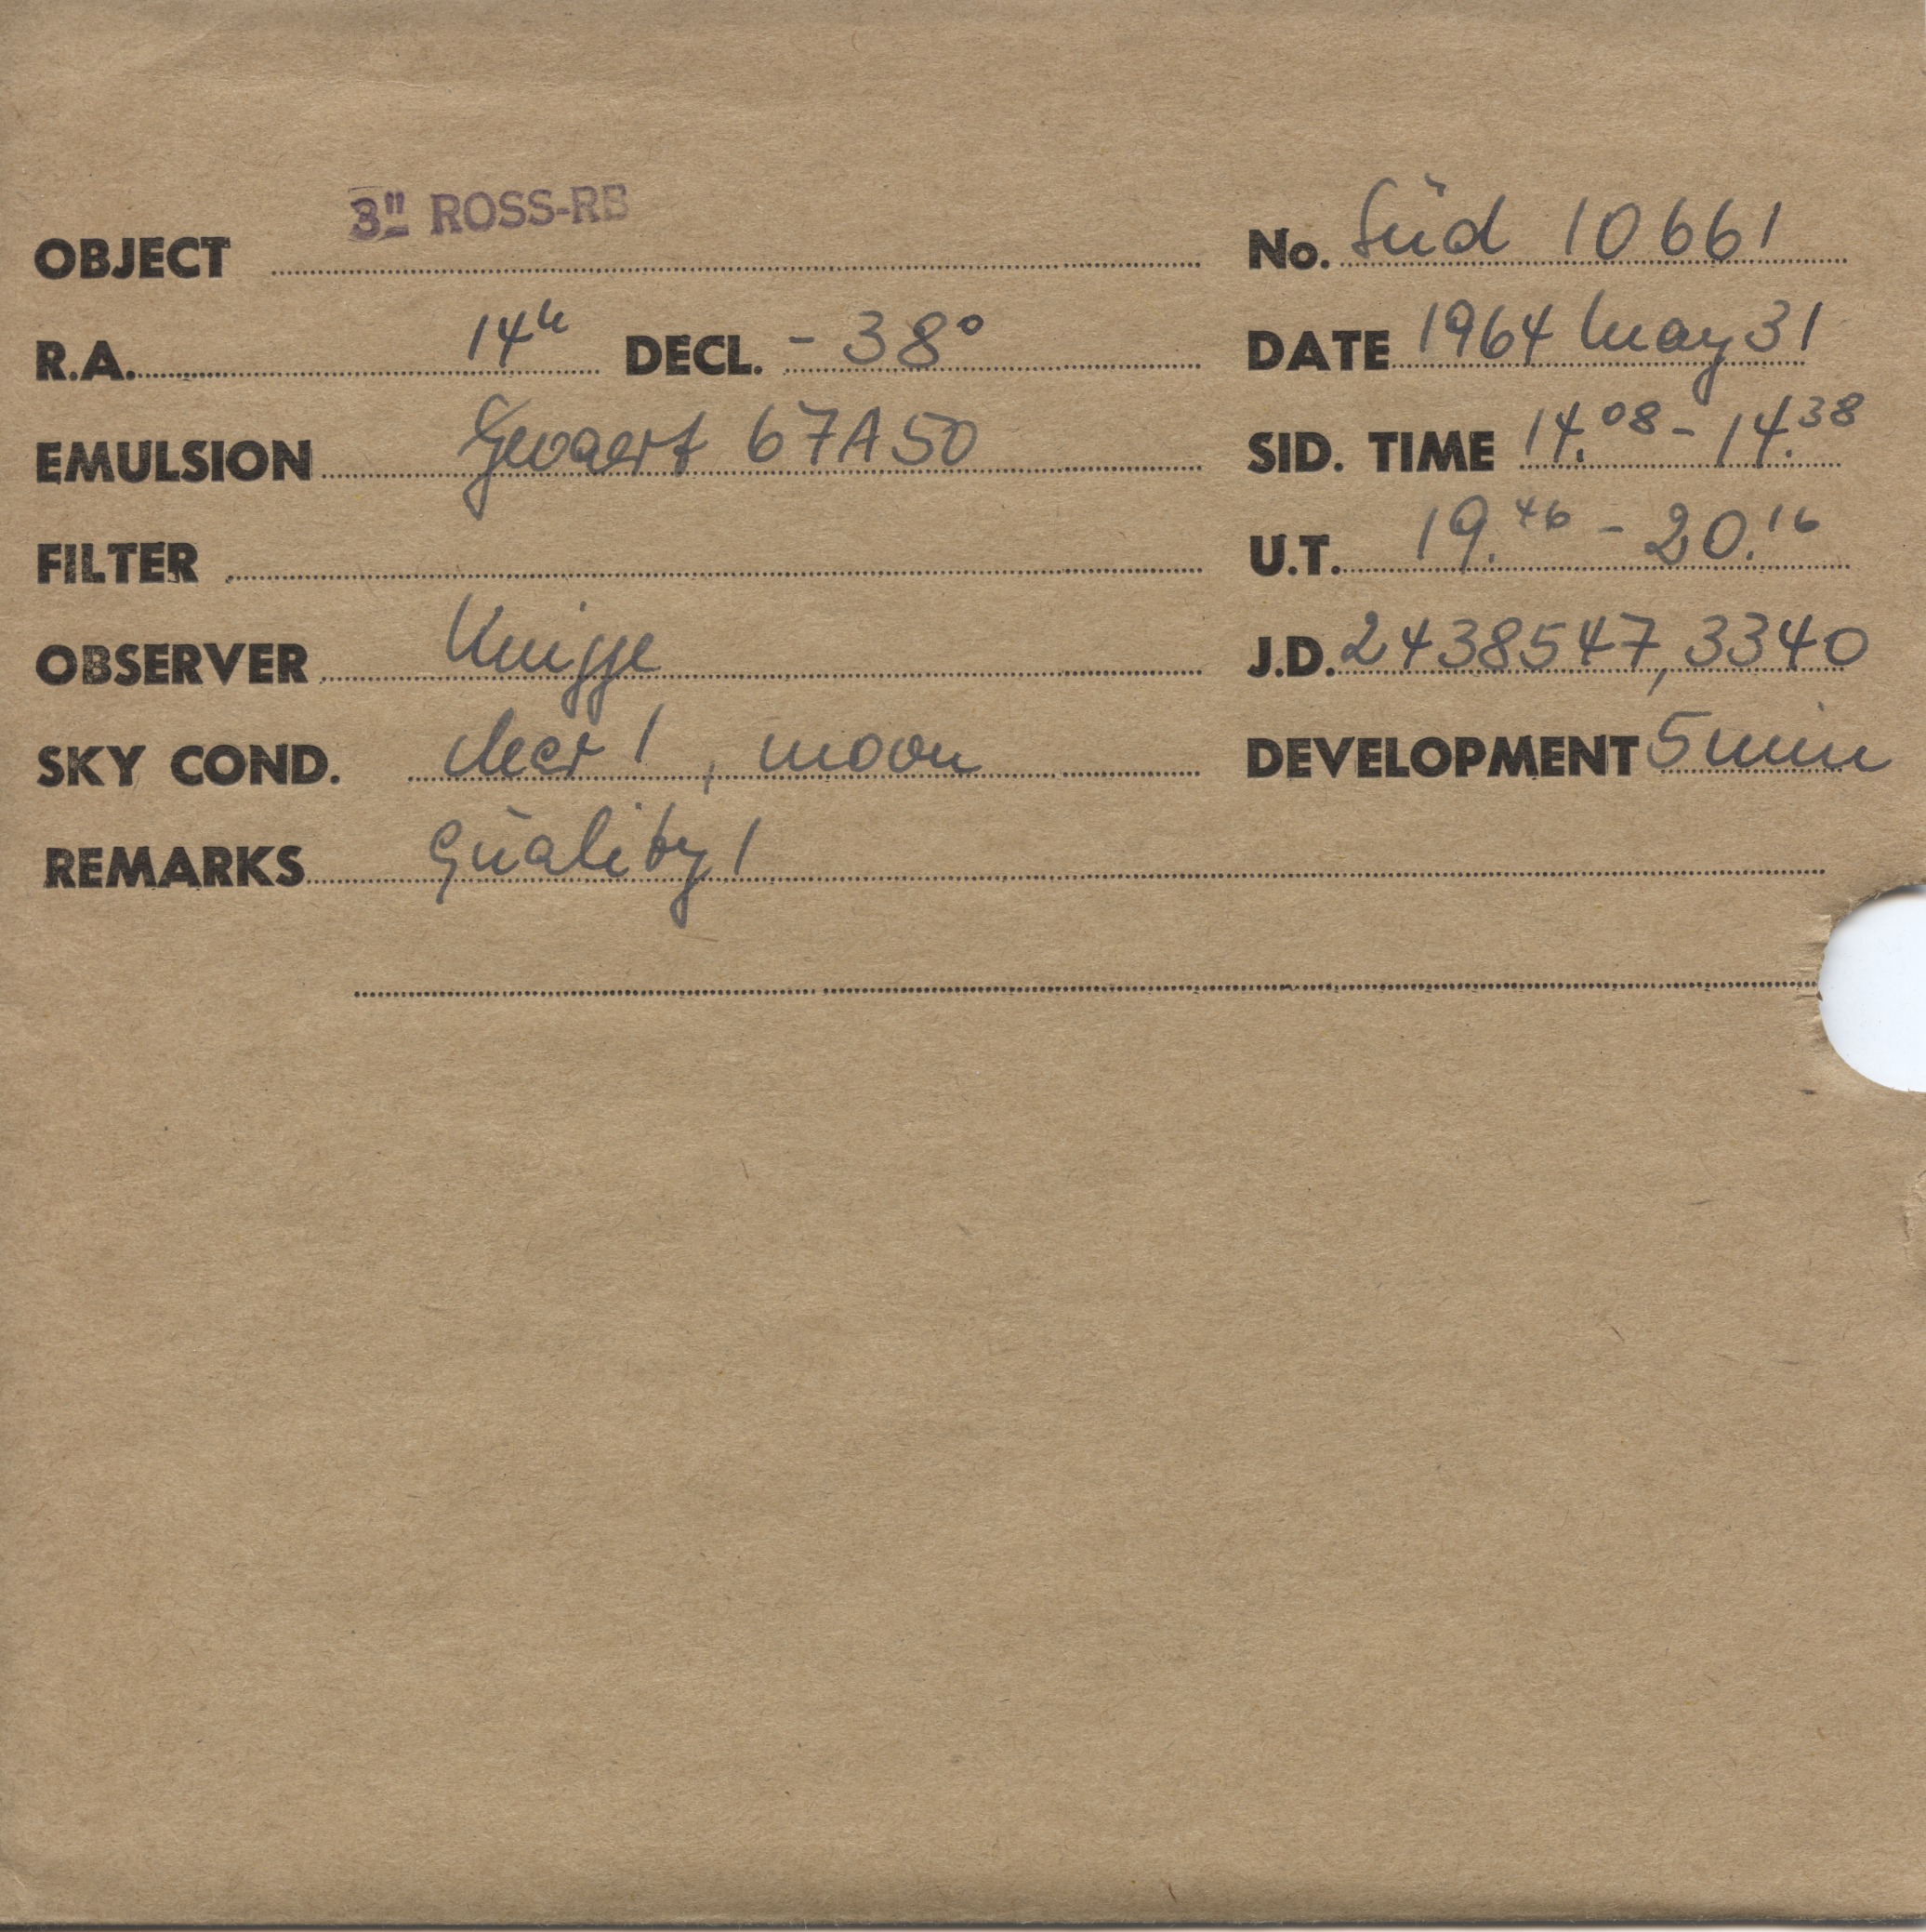 3" ROSS-RB
OBJECT No. Süd 10661
R.A. 14h DECL. -38° DATE 1964 May 31
EMULSION Gevaert 67A50 SID. TIME 14.08 - 14.38
FILTER U.T. 19.46 - 20.16
OBSERVER Knigge J.D. 2438547,3340
SKY COND. clear 1, moon DEVELOPMENT 5 min
REMARKS Quality 1